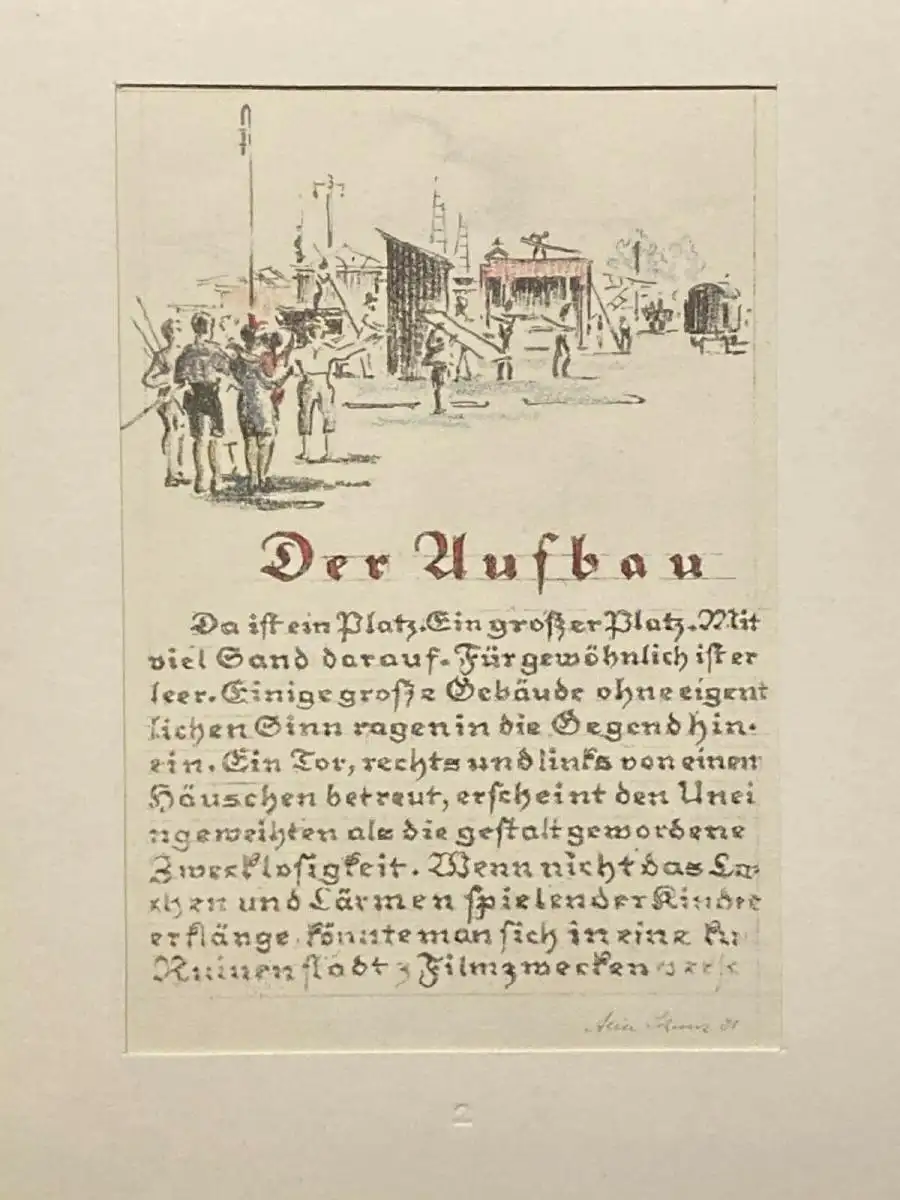 Der Aufbau
Da ist ein Platz. Ein großer Platz. Mit
viel Sand darauf. Für gewöhnlich ist er
leer. Einige große Gebäude ohne eigent
lichen Sinn ragen in die Gegend hin-
ein. Ein Tor, rechts und links von einem
Häuschen betreut, erscheint den Unei
ngeweihten als die gestaltgewordene
Zwecklosigkeit. Wenn nicht das La-
chen und Lärmen spielender Kinder
erklänge, könnte man sich in eine
Ruinenstadt z Filmzwecken
2